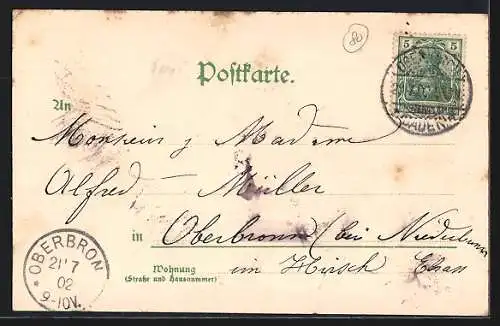 80
5 5
BADEN
Postkarte.
An
Monsieur & Madame
Alfred – Müller
in Oberbronn (bei Niederbronn
im Hirsch Elsass
Wohnung
(Straße und Hausnummer)
* OBERBRON
21 7
02
9-10V.